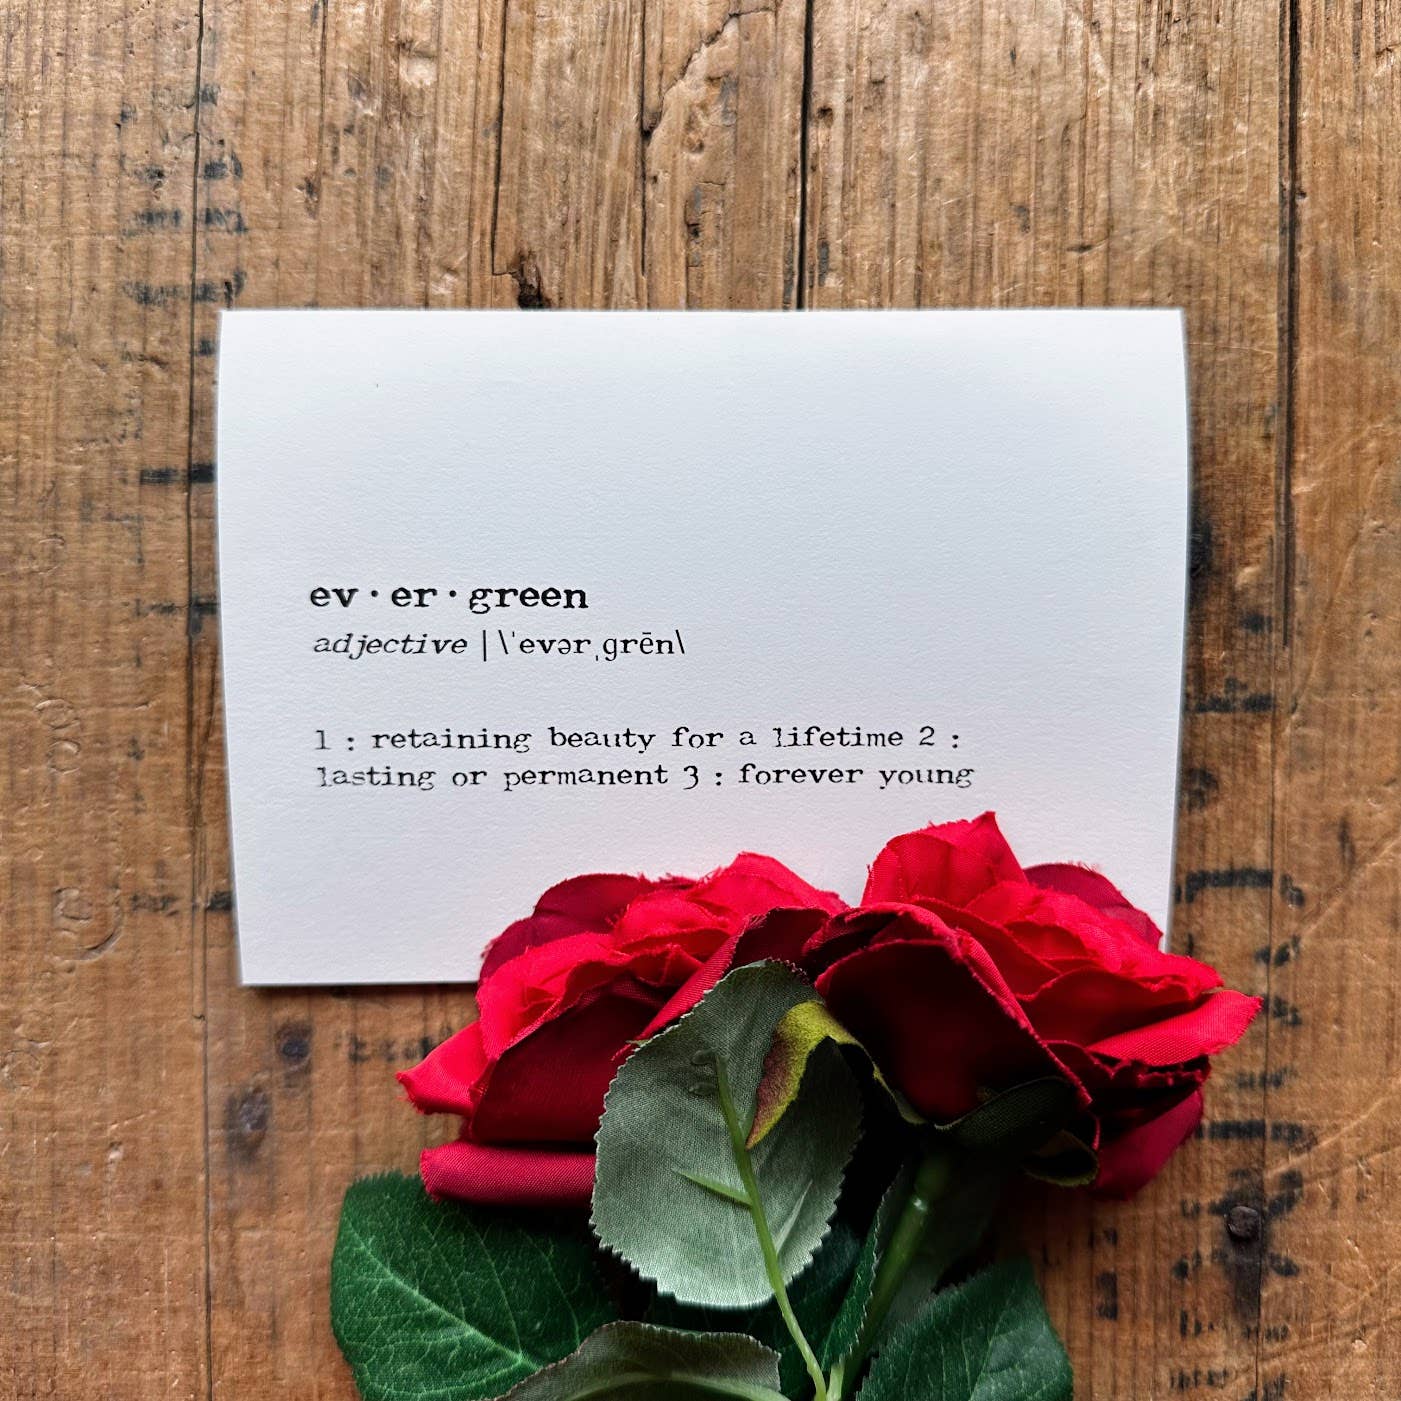 ev · er · green
adjective | \ˈevərˌgrēn\
1 : retaining beauty for a lifetime 2 :
lasting or permanent 3 : forever young